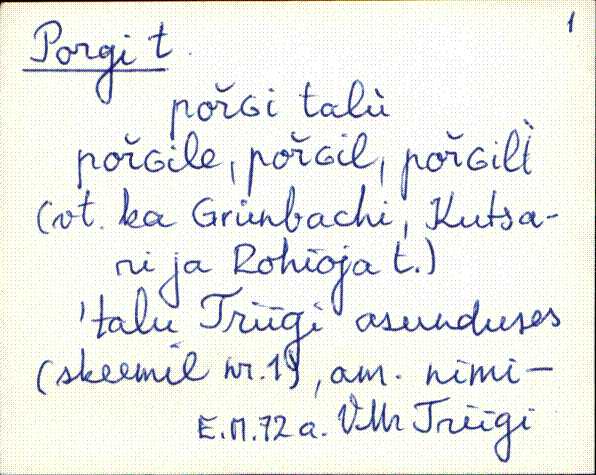 1
Porgi t.
pořGi talù
pořGile, pořGil, pořGilt̀
(vt. ka Grünbachi, Kutsa-
ri ja Rohioja t.)
'talu Triigi asunduses
(skeemil nr.1), am. nimi—
E.M.72 a. VMr Triigi